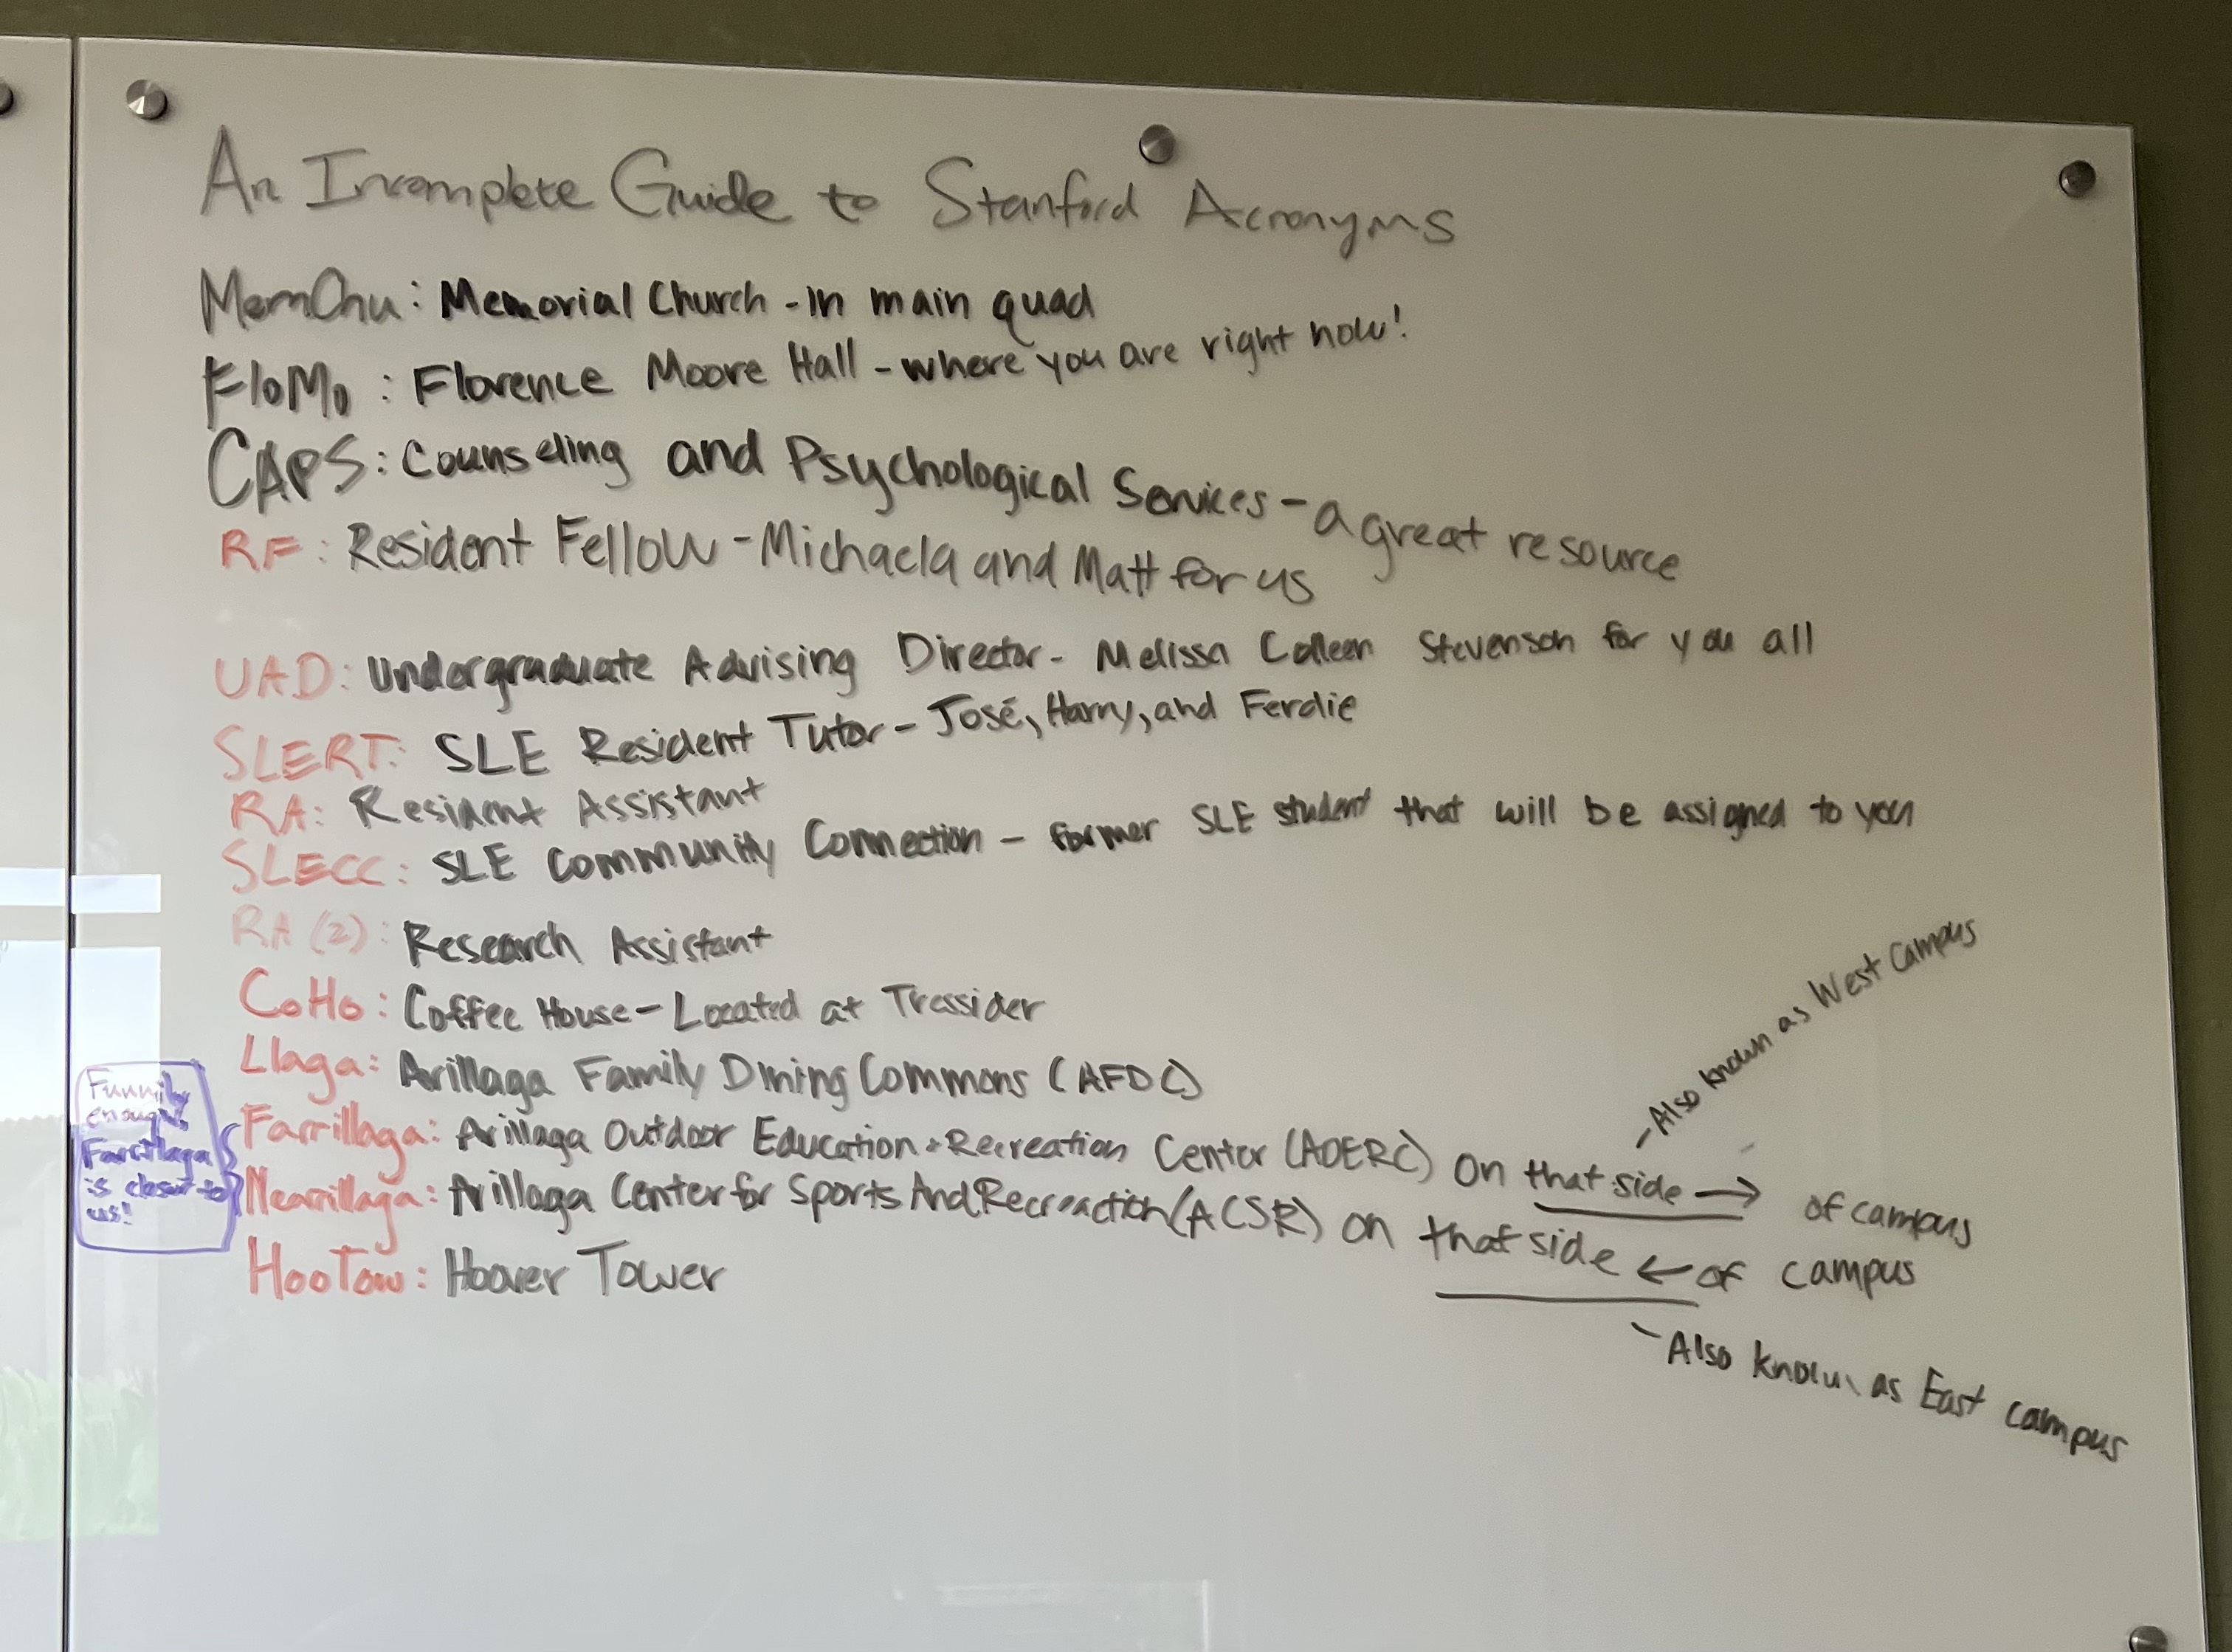 An Incomplete Guide to Stanford Acronyms
MemChu: Memorial Church - in main quad
FloMo: Florence Moore Hall - where you are right now!
CAPS: Counseling and Psychological Services - a great resource
RF: Resident Fellow - Michaela and Matt for us
UAD: Undergraduate Advising Director - Melissa Colleen Stevenson for you all
SLERT: SLE Resident Tutor - José, Harry, and Ferdie
RA: Resident Assistant
SLECC: SLE Community Connection - former SLE student that will be assigned to you
RA (2): Research Assistant
CoHo: Coffee House - Located at Tressider
Llaga: Arillaga Family Dining Commons (AFDC)
Farrillaga: Arillaga Outdoor Education + Recreation Center (AOERC) on that side → of campus
- Also known as West Campus
Nearillaga: Arillaga Center for Sports And Recreaction (ACSR) on that side ← of campus
- Also known as East campus
HooTow: Hoover Tower
Funnily
enough,
Farrillaga
is closer to
us!